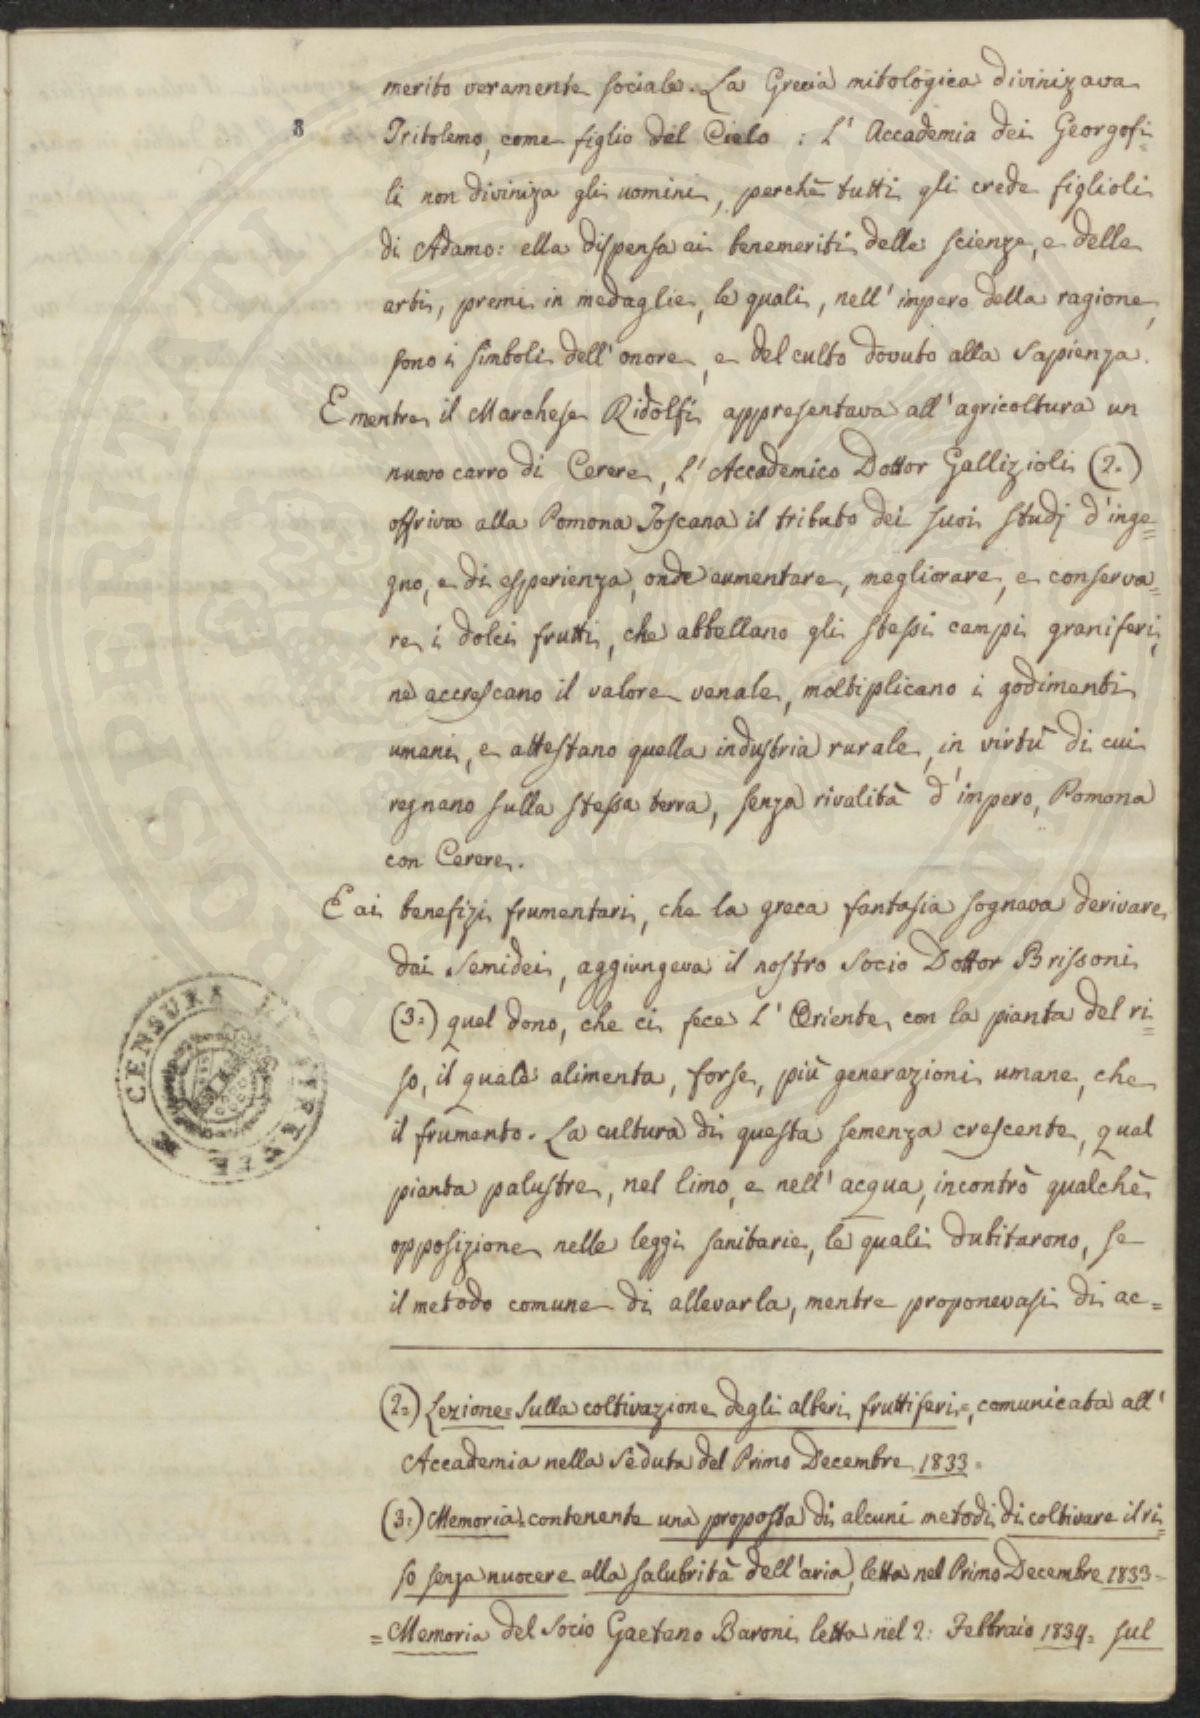 merito veramente sociale. La Grecia mitologica divinizava
8
Tritolemo, come figlio del Cielo : L' Accademia dei Georgofi=
li non diviniza gli uomini, perchè tutti gli crede figlioli
di Adamo: ella dispensa ai benemeriti delle scienze, e delle
arti, premi in medaglie, le quali, nell' impero della ragione,
sono i simboli dell' onore, e del culto dovuto alla Sapienza.
E mentre il Marchese Ridolfi appresentava all' agricoltura un
nuovo carro di Cerere, l' Accademico Dottor Gallizioli (2.)
offriva alla Pomona Toscana il tributo dei suoi studj d' inge=
gno, e di esperienza, onde aumentare, megliorare, e conserva=
re i dolci frutti, che abbellano gli stessi campi graniferi,
ne accrescano il valore venale, moltiplicano i godimenti
umani, e attestano quella industria rurale, in virtù di cui
regnano sulla stessa terra, senza rivalità d' impero, Pomona
con Cerere.
E ai benefizi frumentari, che la greca fantasia sognava derivare
dai Semidei, aggiungeva il nostro Socio Dottor Brissoni
(3=) quel dono, che ci fece l' Oriente con la pianta del ri=
so, il quale alimenta, forse, più generazioni umane, che
il frumento. La cultura di questa semenza crescente, qual
pianta palustre, nel limo, e nell' acqua, incontrò qualchè
opposizione nelle leggi sanitarie, le quali dubitarono, se
il metodo comune di allevarla, mentre proponevasi di ac=
(2=) Lezione= sulla coltivazione degli alberi fruttiferi=, comunicata all'
Accademia nella Seduta del Primo Decembre 1833.
(3=) Memoria= contenente una proposta di alcuni metodi di coltivare il ri=
so senza nuocere alla salubrità dell' aria, letta nel Primo Decembre 1833=
= Memoria del Socio Gaetano Baroni letta nel 2: Febbraio 1834= sul
CENSURA
PROSPERITATI